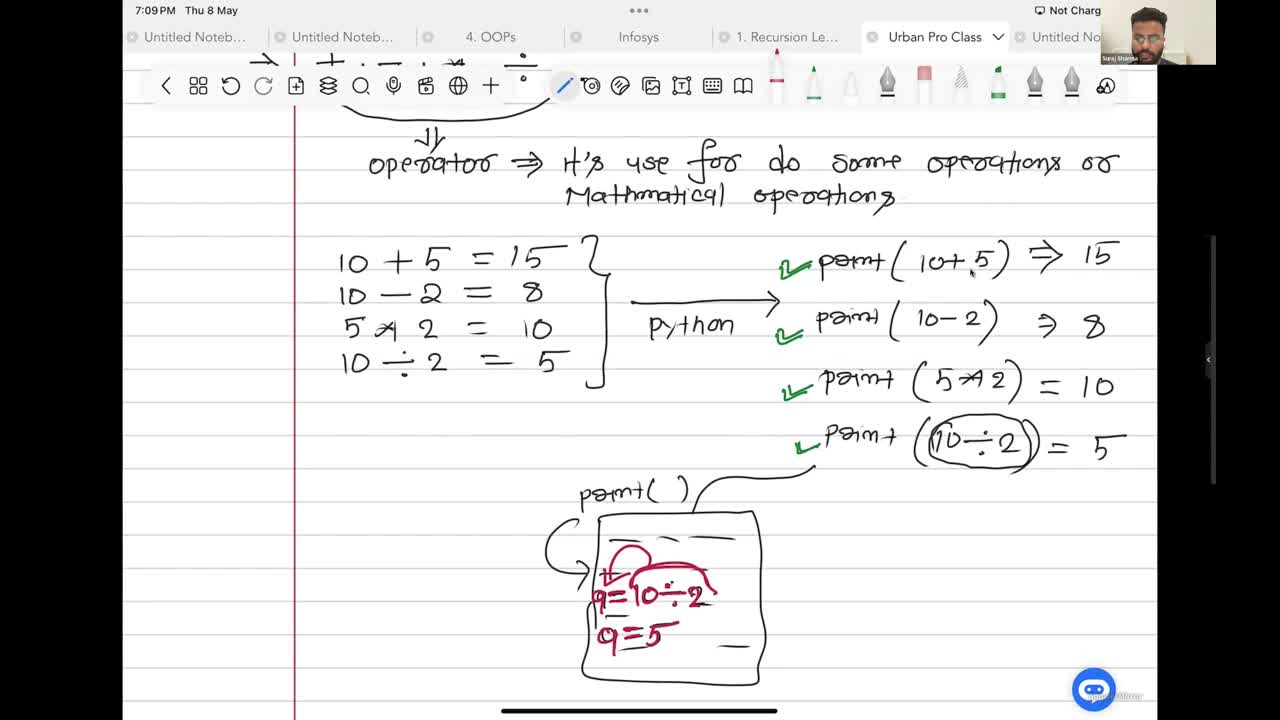 7:09 PM Thu 8 May
Not Charg
Untitled Noteb...
Untitled Noteb...
4. OOPs
Infosys
1. Recursion Le...
Urban Pro Class
Untitled No
Suraj Sharma
+ - *  ÷
operator ⇒ it's use for do some operations or
Mathmatical operations
10 + 5 = 15
10 - 2 = 8
5 * 2 = 10
10 ÷ 2 = 5
python
print ( 10 + 5 ) ⇒ 15
print ( 10 - 2 ) ⇒ 8
print ( 5 * 2 ) = 10
print ( 10 ÷ 2 ) = 5
print ( )
9 = 10 ÷ 2
9 = 5